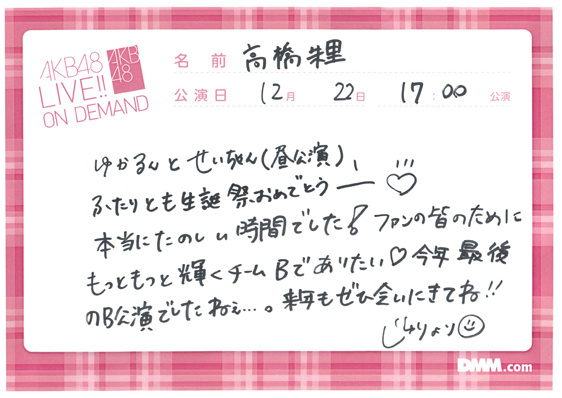 AKB48
LIVE!!
ON DEMAND
AKB
48
名前 高橋朱里
公演日 12月 22日 17:00 公演
ゆかるんとせいちゃん(昼公演)、
ふたりとも生誕祭おめでとうー♡
本当にたのしい時間でした! ファンの皆のために
もっともっと輝くチームBでありたい♡今年最後
のB公演でしたねぇ…。来年もぜひ会いにきてね!!
じゅりより
DMM.com